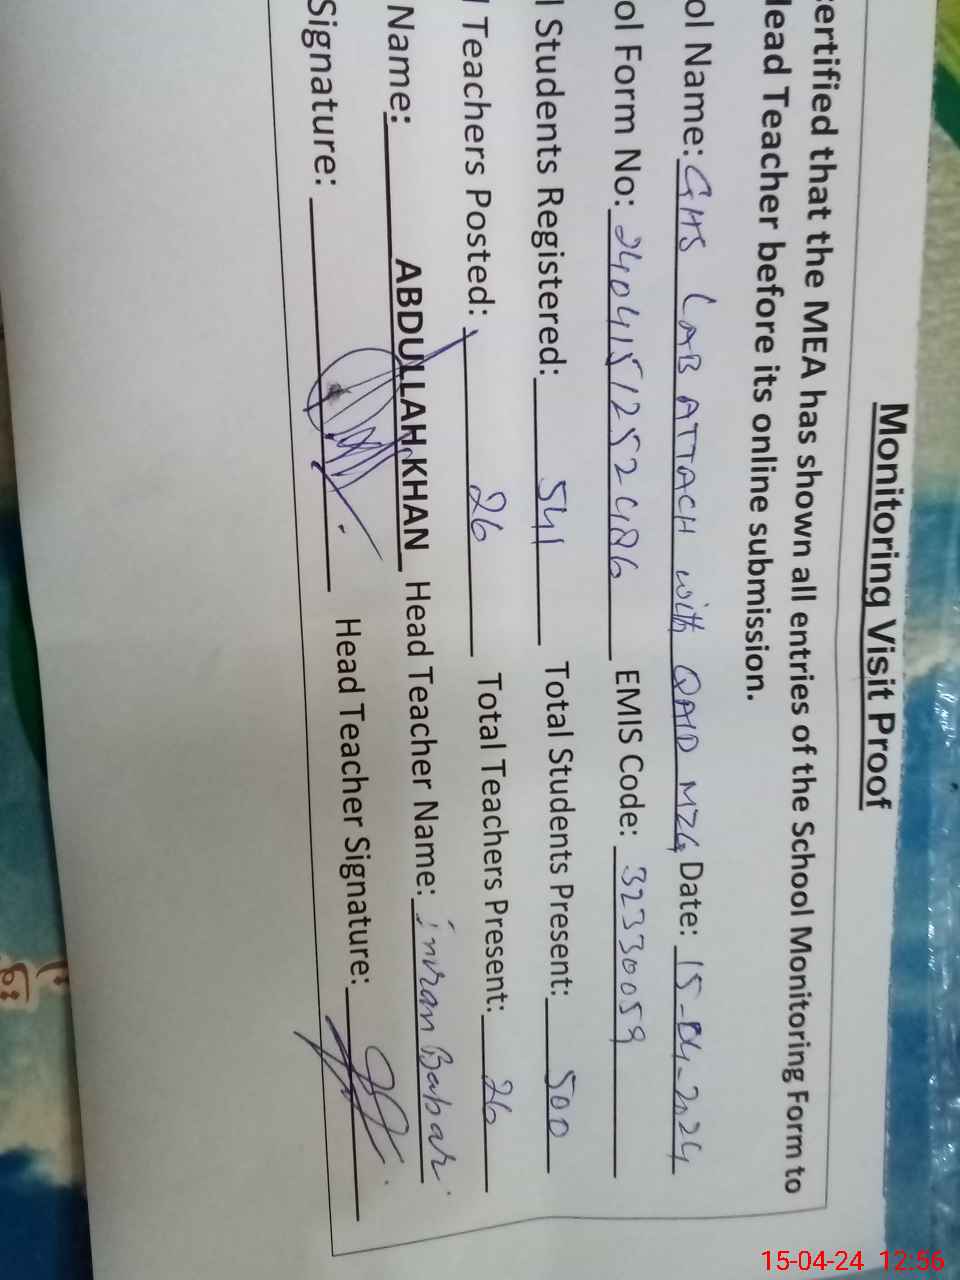 Monitoring Visit Proof
ertified that the MEA has shown all entries of the School Monitoring Form to
Head Teacher before its online submission.
ol Name: GHS LAB ATTACH with QAID MZG Date: 15-04-2024
ol Form No: EMIS Code: 32330059
l Students Registered: 541 Total Students Present: 500
l Teachers Posted: 26 Total Teachers Present: 26
Name: ABDULLAH KHAN Head Teacher Name: imran Babar
Signature: Head Teacher Signature:
15-04-24 12:56